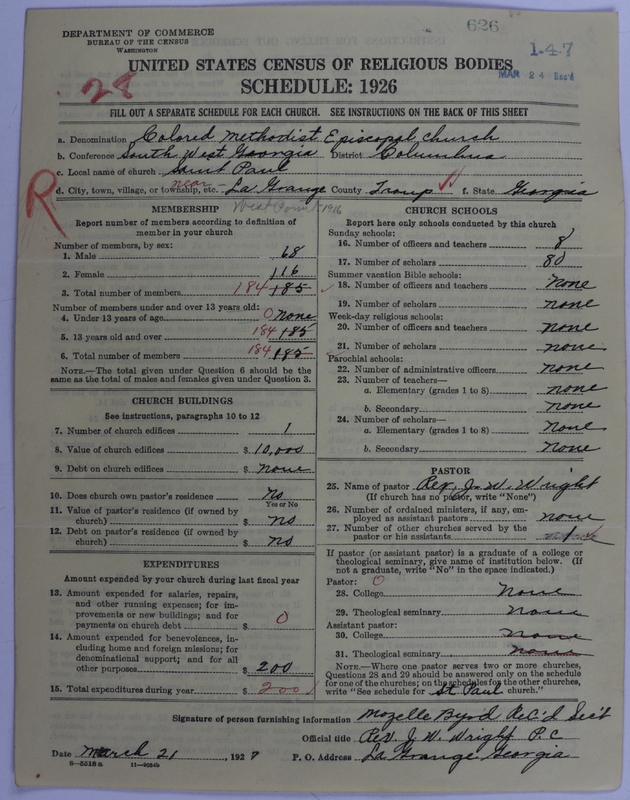 626
DEPARTMENT OF COMMERCE
BUREAU OF THE CENSUS
WASHINGTON
1-4-7
UNITED STATES CENSUS OF RELIGIOUS BODIES
MAR 24 Rec'd
SCHEDULE: 1926
28
FILL OUT A SEPARATE SCHEDULE FOR EACH CHURCH. SEE INSTRUCTIONS ON THE BACK OF THIS SHEET
a. Denomination Colored Methodist Episcopal Church
b. Conference South West Georgia District Columbus
c. Local name of church Saint Paul
d. City, town, village, or township, etc. near La Grange County Troup f. State Georgia
R
West Point 1916
MEMBERSHIP
Report number of members according to definition of
member in your church
Number of members, by sex:
1. Male 68
2. Female 116
3. Total number of members 184 185
Number of members under and over 13 years old:
4. Under 13 years of age 0 None
5. 13 years old and over 184 185
6. Total number of members 184 185
NOTE.—The total given under Question 6 should be
same as the total of males and females given under Question 3.
CHURCH BUILDINGS
See instructions, paragraphs 10 to 12
7. Number of church edifices 1
8. Value of church edifices $ 10,000
9. Debt on church edifices $ none
10. Does church own pastor's residence No
Yes or No
11. Value of pastor's residence (if owned by
church) $ no
12. Debt on pastor's residence (if owned by
church) $ no
EXPENDITURES
Amount expended by your church during last fiscal year
13. Amount expended for salaries, repairs,
and other running expenses; for im-
provements or new buildings; and for
payments on church debt $ 0
14. Amount expended for benevolences, in-
cluding home and foreign missions; for
denominational support; and for all
other purposes $ 200
15. Total expenditures during year $ 200
CHURCH SCHOOLS
Report here only schools conducted by this church
Sunday schools:
16. Number of officers and teachers 8
17. Number of scholars 80
Summer vacation Bible schools:
18. Number of officers and teachers none
19. Number of scholars none
Week-day religious schools:
20. Number of officers and teachers none
21. Number of scholars none
Parochial schools:
22. Number of administrative officers none
23. Number of teachers—
a. Elementary (grades 1 to 8) none
b. Secondary none
24. Number of scholars—
a. Elementary (grades 1 to 8) none
b. Secondary none
PASTOR
25. Name of pastor Rev. J. W. Wright
(If church has no pastor, write "None")
26. Number of ordained ministers, if any, em-
ployed as assistant pastors none
27. Number of other churches served by the
pastor or his assistants
If pastor (or assistant pastor) is a graduate of a college or
theological seminary, give name of institution below. (If
not a graduate, write "No" in the space indicated.)
Pastor: 0
28. College none
29. Theological seminary none
Assistant pastor:
30. College none
31. Theological seminary none
NOTE.—Where one pastor serves two or more churches,
Questions 28 and 29 should be answered only on the schedule
for one of the churches; on the schedules for the other churches,
write "See schedule for St Paul church."
Signature of person furnishing information Mozelle Byrd Rec'd Sec't
Official title Rev. J. W. Wright P. C
Date March 21, 1927 P. O. Address La Grange Georgia
8-5518a 11-9034b